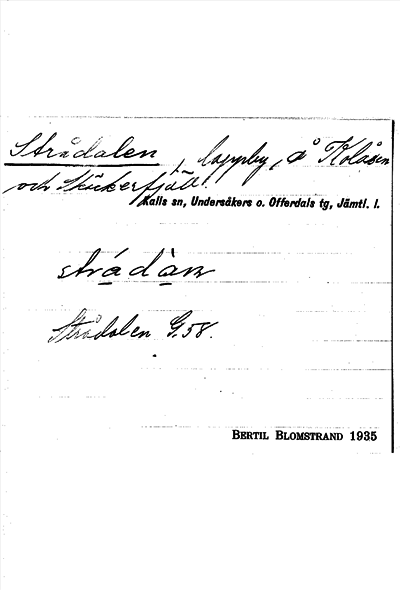 Strådalen, lappby, å Kolåsen
och Skäckerfjäll.
Kalls sn, Undersåkers o. Offerdals tg, Jämtl. l.
Strådalen G.58.
BERTIL BLOMSTRAND 1935